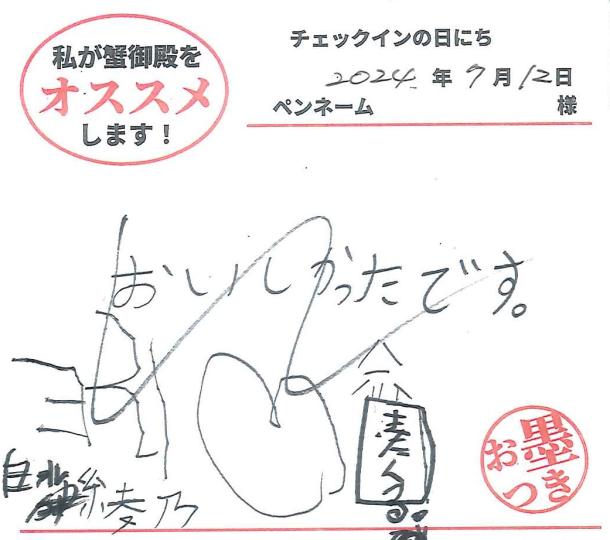 私が蟹御殿を
オススメ
します！
チェックインの日にち
2024年 7月12日
ペンネーム 様
おいしかったです。
お墨つき